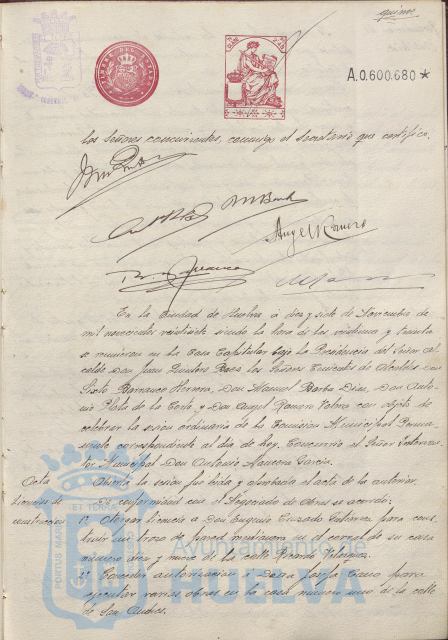 quince
TIMBRE DEL ESTADO
A.0.600.680 ★
los Señores concurrentes, conmigo el Secretario que certifico.
Angel Romero
En la Ciudad de Huelva á diez y siete de Noviembre de
mil novecientos veintisiete siendo la hora de las veintiuna y treinta
se reunieron en la Casa Capitular bajo la Presidencia del Señor Al-
calde Don Juan Quintero Baez los Señores Tenientes de Alcalde Don
Sixto Barranco Herrera, Don Manuel Barba Diaz, Don Anto-
nio Plata de la Corte, y Don Angel Ramon Valero con objeto de
celebrar la sesion ordinaria de la Comision Municipal Perma-
nente correspondiente al dia de hoy. Concurrió el Señor Interven-
tor Municipal Don Antonio Garcia
Acta
Abierta la sesion fué leida y aprobada el acta de la anterior.
Licencias de
construccion
De conformidad con el Negociado de Obras se acordó:
1º Otorgar licencia a Don Eugenio Cruzado Gutierrez para cons-
truir un trozo de pared medianera en el corral de su casa
numero diez y nueve de la calle Ricardo Velazquez.
2º Conceder autorizacion a Josefa Cano para
ejecutar varias obras en la casa numero uno de la calle
de San Andres.
PORTUS MARIS ET TERRAE
Ayuntamiento de
HUELVA